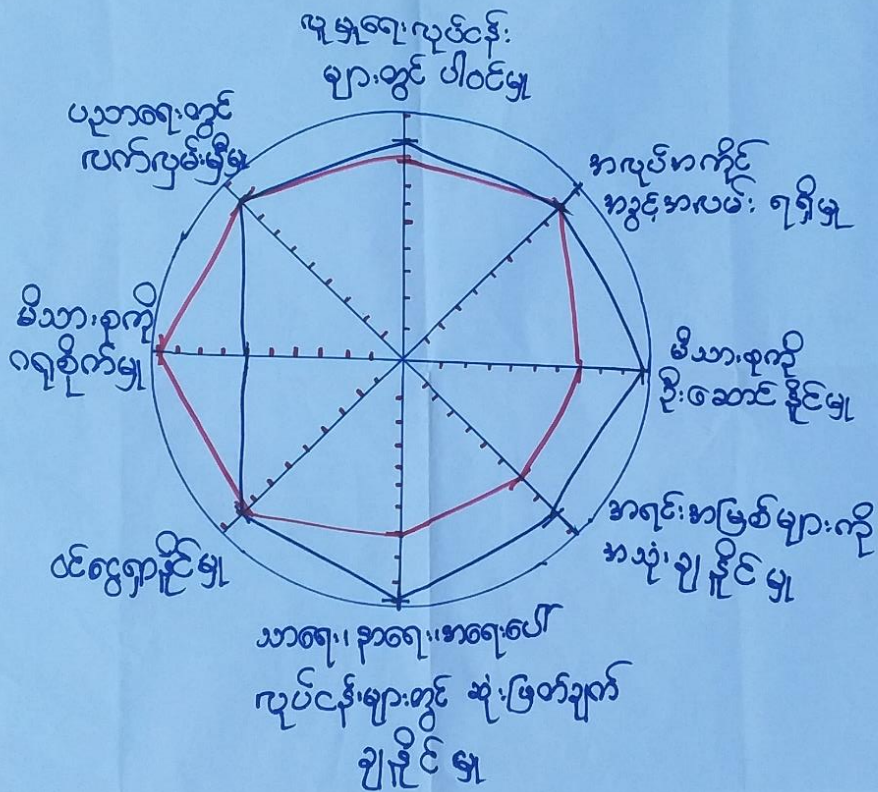 လူမှုရေးလုပ်ငန်း
များတွင် ပါဝင်မှု
အလုပ်အကိုင်
အခွင့်အလမ်း ရရှိမှု
မိသားစုကို
ဦးဆောင်နိုင်မှု
အရင်းအမြစ်များကို
အသုံးချနိုင်မှု
သာရေး၊နာရေး၊အရေးပေါ်
လုပ်ငန်းများတွင် ဆုံးဖြတ်ချက်
ချနိုင်မှု
ဝင်ငွေရှာနိုင်မှု
မိသားစုကို
ဂရုစိုက်မှု
ပညာရေးတွင်
လက်လှမ်းမှီမှု